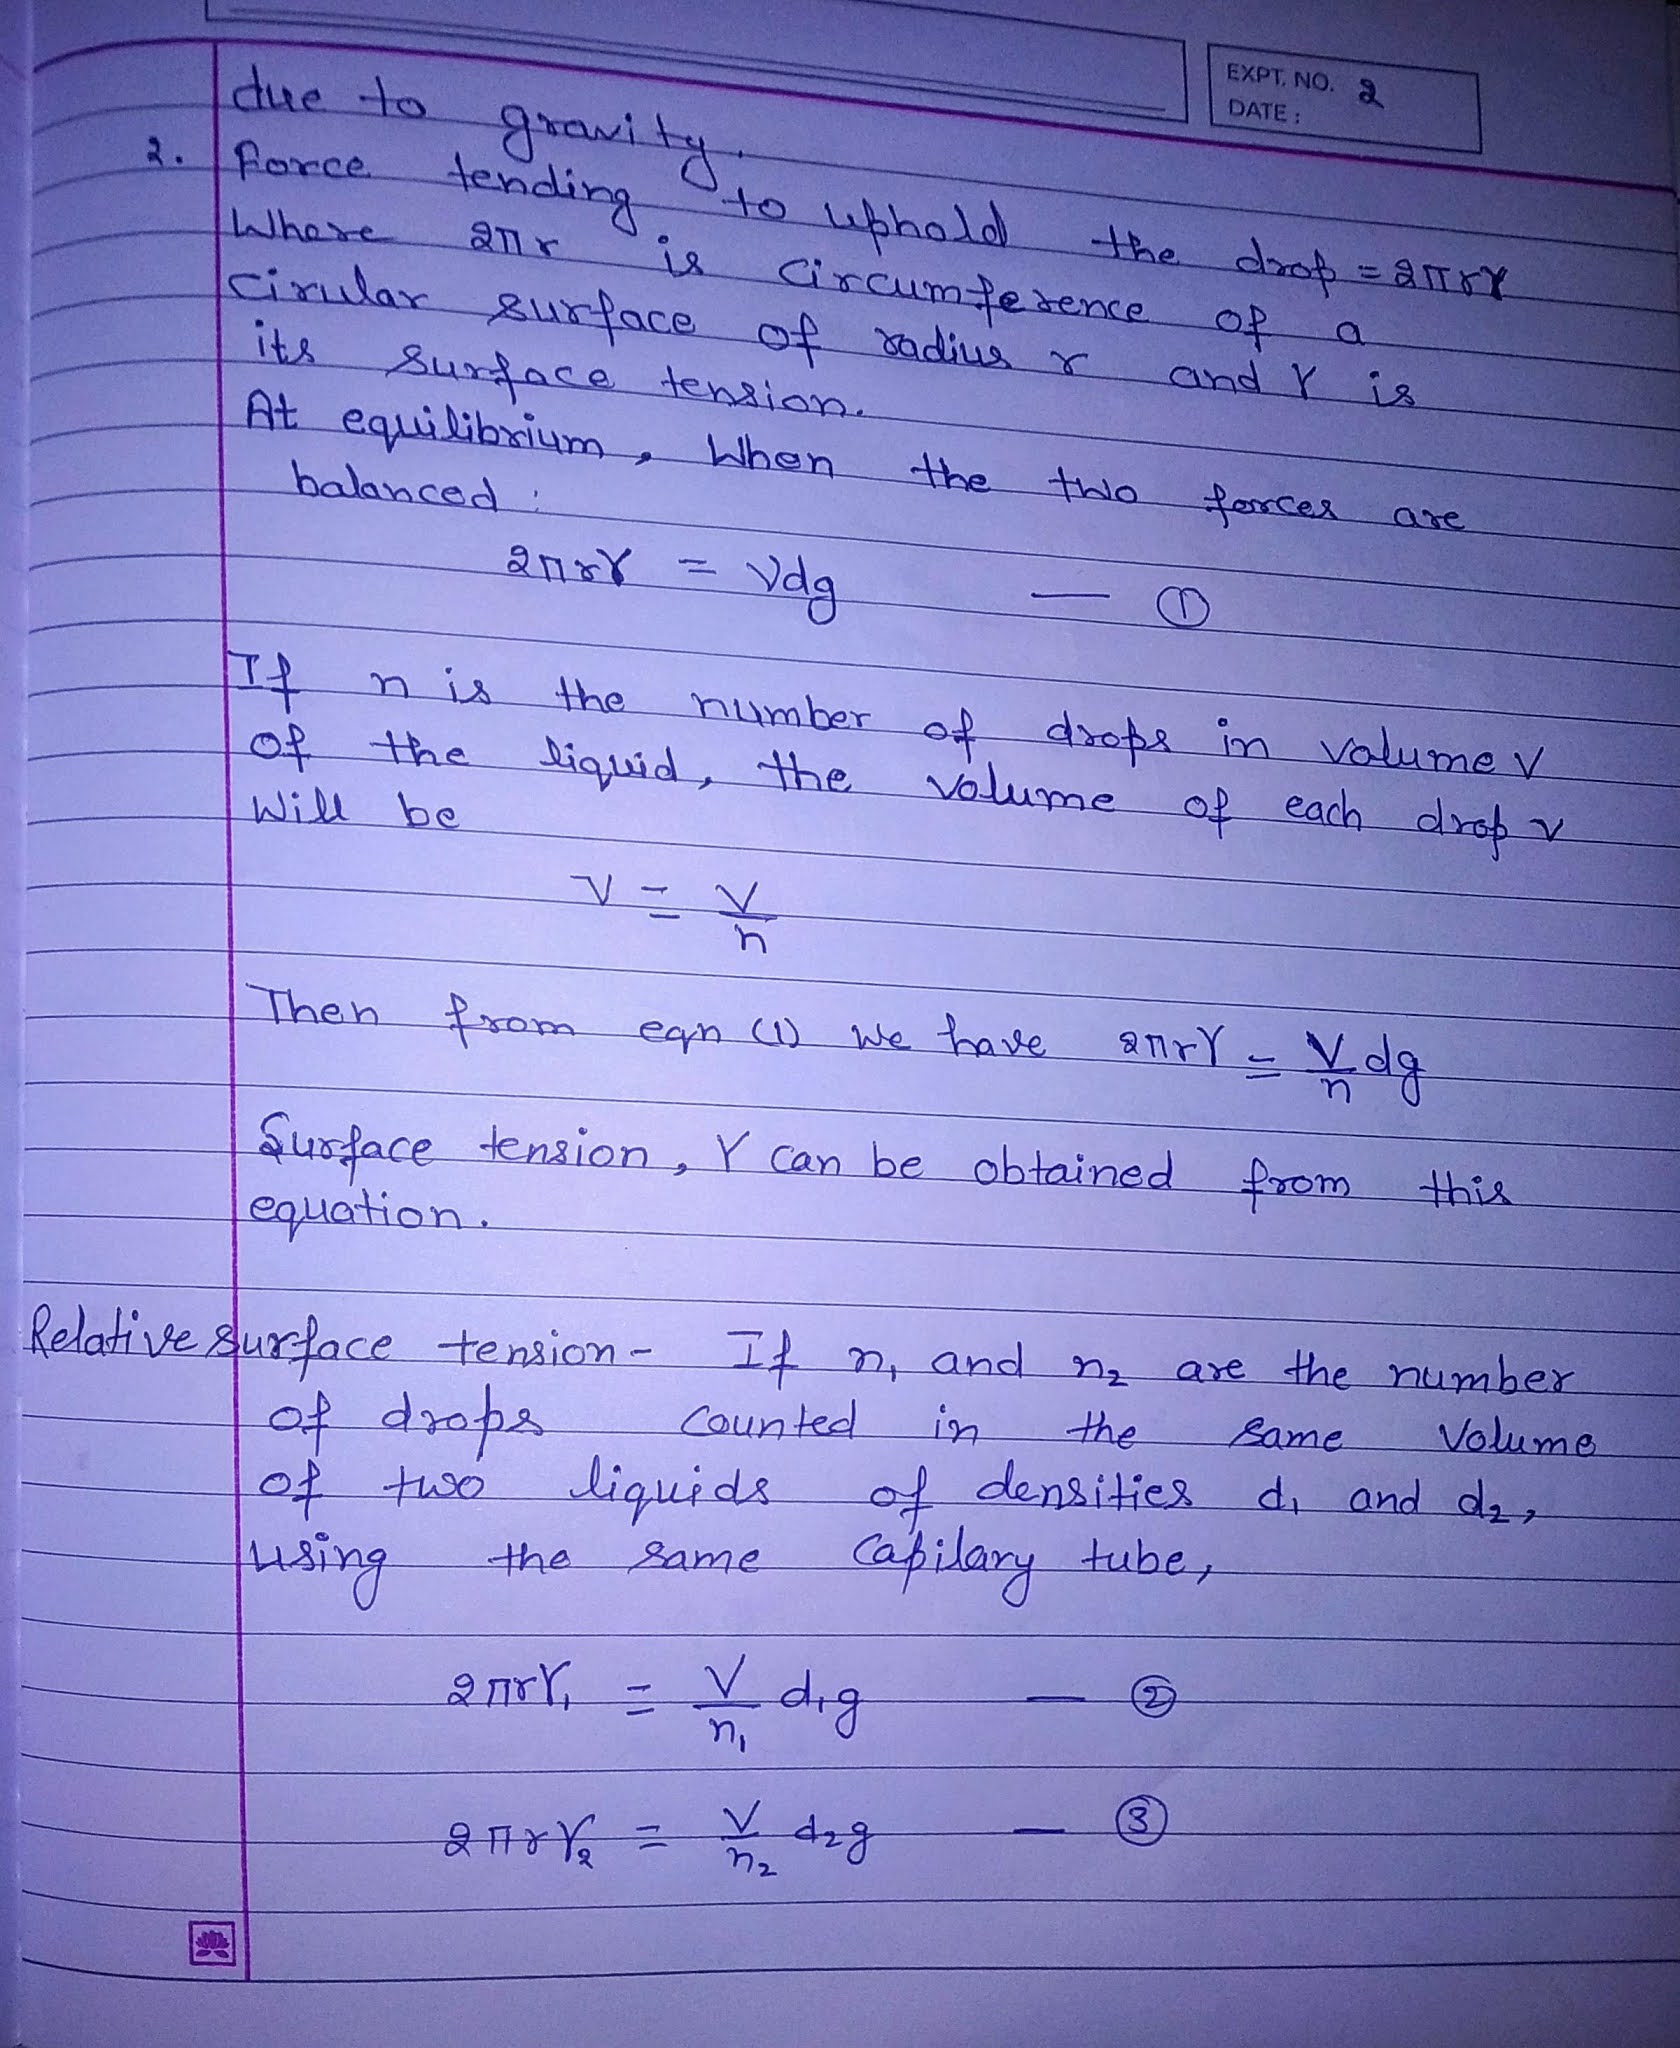 EXPT. NO. 2
DATE :
due to gravity.
2. Force tending to uphold the drop = 2πrγ
Where 2πr is circumference of a
cirular surface of radius r and γ is
its surface tension.
At equilibrium, When the two forces are
balanced :
2πrγ = Vdg — ①
If n is the number of drops in volume V
of the liquid, the volume of each drop v
Will be
v = V/n
Then from eqn (1) we have 2πrγ = V/n dg
Surface tension, γ can be obtained from this
equation.
Relative surface tension- If n₁ and n₂ are the number
of drops counted in the same volume
of two liquids of densities d₁ and d₂,
using the same Capilary tube,
2πrγ₁ = V/n₁ d₁g — ②
2πrγ₂ = V/n₂ d₂g — ③